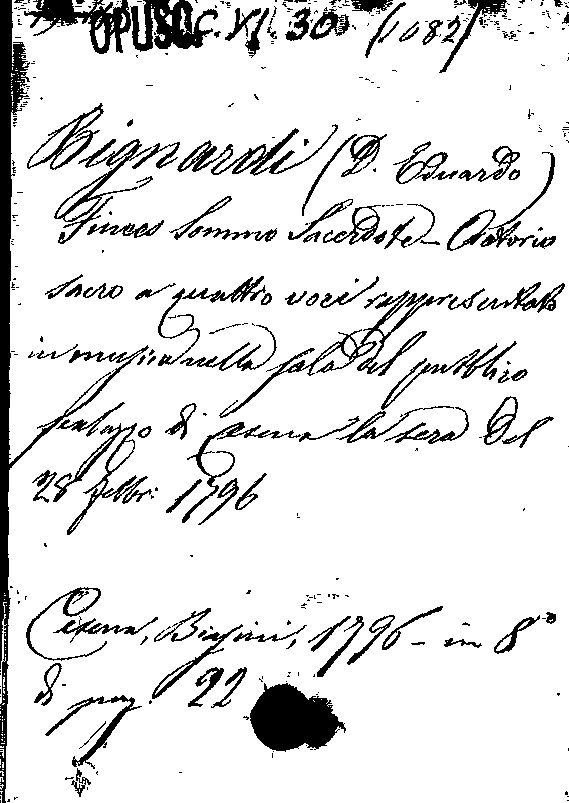 OPUSC. C. VI. 30 (1082)
Bignardi (D. Eduardo)
Finees Sommo Sacerdote - Oratorio
sacro a quattro voci rappresentato
in musica nella sala del pubblico
palazzo di Cesena la sera del
28 febbr: 1796
Cesena, Biasini, 1796 - in 8°
di pag. 22